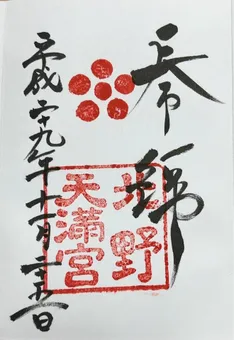 北野
天満宮
平成二十九年十一月二十五日